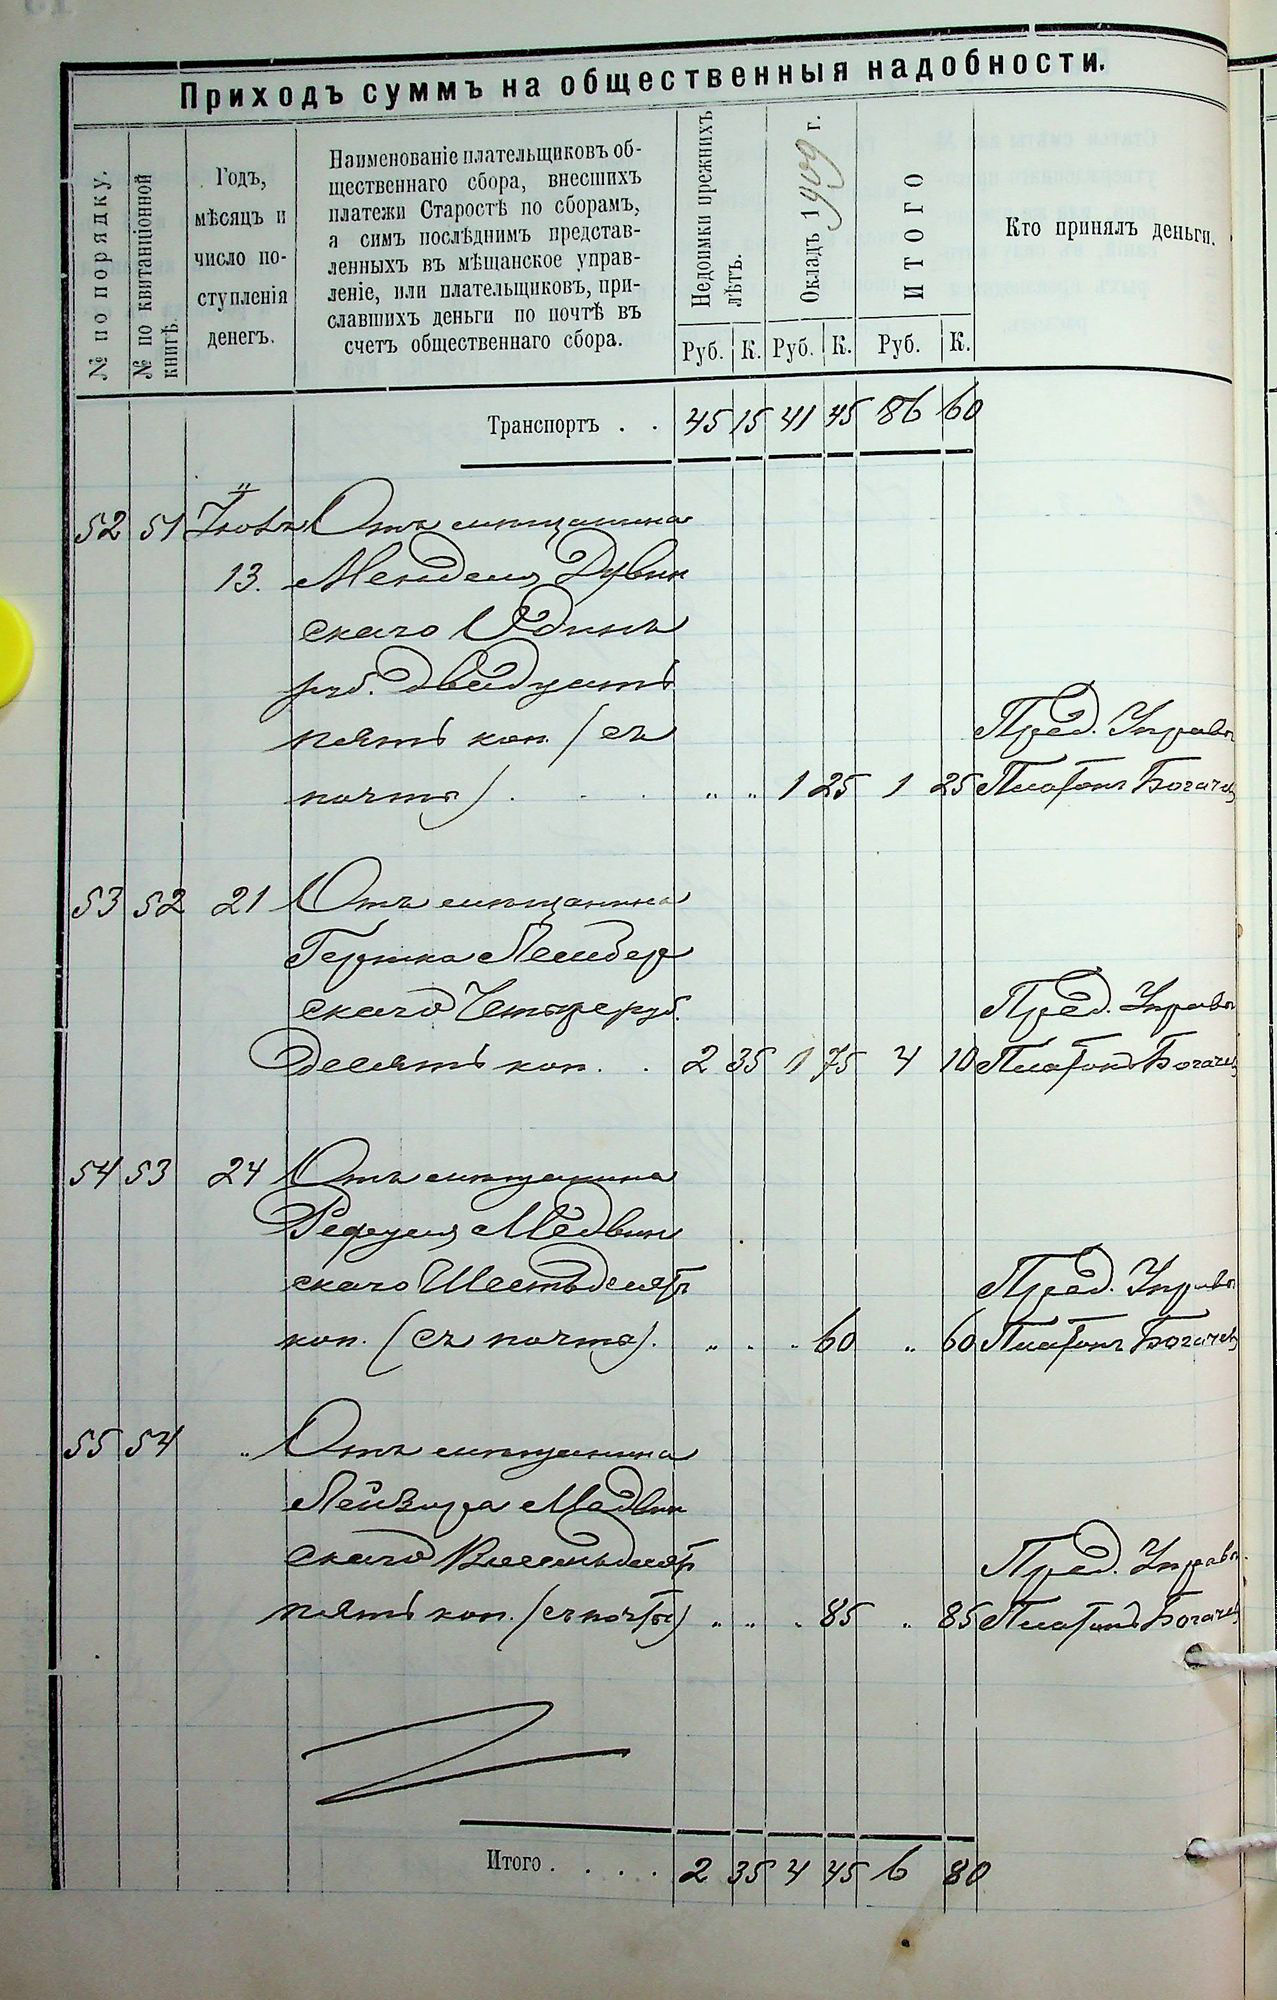 Приходъ суммъ на общественныя надобности.
№ по порядку.
№ по квитанціонной
книгѣ.
Годъ,
мѣсяцъ и
число по-
ступленія
денегъ.
Наименованіе плательщиковъ об-
щественнаго сбора, внесшихъ
платежи Старостѣ по сборамъ,
а симъ послѣднимъ представ-
ленныхъ въ мѣщанское управ-
леніе, или плательщиковъ, при-
славшихъ деньги по почтѣ въ
счетъ общественнаго сбора.
Недоимки прежнихъ
лѣтъ.
Окладъ 1909 г.
ИТОГО
Кто принялъ деньги.
Руб. К. Руб. К. Руб. К.
Транспортъ . . 45 15 41 45 86 60
52 51 Отъ мѣщанина
13. Менделя Дувин
скаго Одинъ
руб. двадцать
пять коп. (съ Пред. Управы
почты) . . . „ „ 1 25 1 25 Платонъ Богачевъ
53 52 21 Отъ мѣщанина
Гершка Лембер
скаго Четыре руб. Пред. Управы
Десять коп. . . 2 35 1 75 4 10 Платонъ Богачевъ
54 53 24 Отъ мѣщанина
Медвин
скаго Шестьдесятъ Пред. Управы
коп. (съ почты). „ „ „ 60 „ 60 Платонъ Богачевъ
55 54 „ Отъ мѣщанина
Лейзора Медвин
скаго Восемьдесятъ Пред. Управы
пять коп. (съ почты) „ „ „ 85 „ 85 Платонъ Богачевъ
Итого . . . . 2 35 4 45 6 80